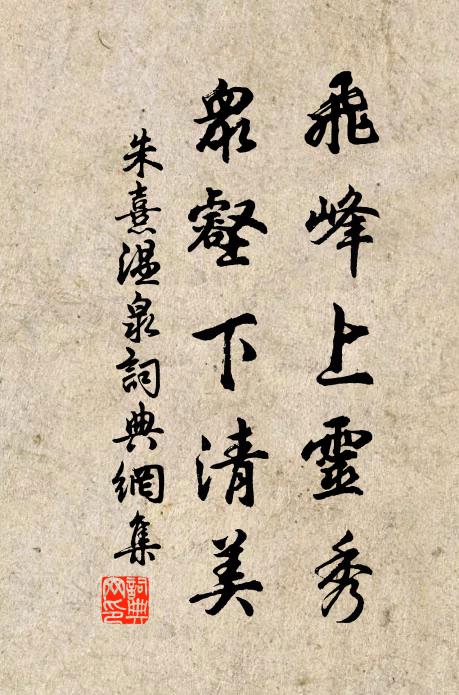 飛峰上靈秀
眾壑下清美
朱熹溫泉詞典網集
詞典網印